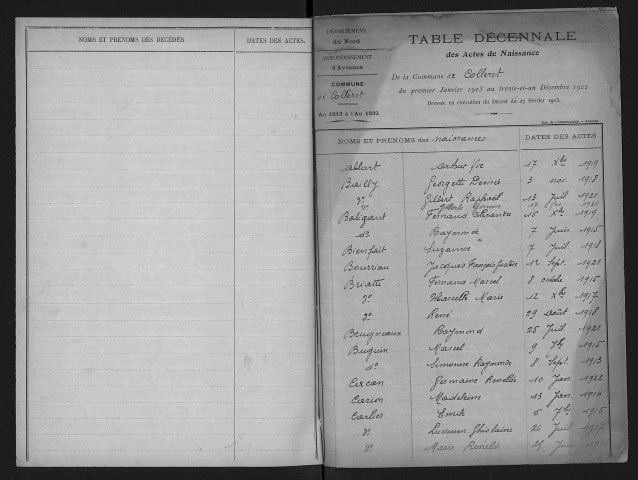 NOMS ET PRÉNOMS DES DÉCÉDÉS
DATES DES ACTES.
DÉPARTEMENT
du Nord
ARRONDISSEMENT
d'Avesnes
COMMUNE
de Colleret
An 1913 à l'An 1922
TABLE DÉCENNALE
des Actes de Naissance
De la Commune de Colleret
du premier Janvier 1913 au trente-et-un Décembre 1922
Dressée en exécution du Décret du 27 Février 1913.
NOMS ET PRÉNOMS des naissances
DATES DES ACTES
Ablart Arthur 17 Xbre 1919
Bailly Georgette Désirée 3 nov. 1918
do Gilbert Raphaël 13 Juil 1921
Baligant Fernand Alexandre 16 Xbre 1919
do Raymonde 7 Juin 1915
Bienfait Suzanne 7 Juil 1918
Bourriau Jacques François 12 Sept. 1921
Briatte Fernand Marcel 8 octobre 1915
do Marcelle Marie 12 Xbre 1917
do René 29 Août 1918
Brugneaux Raymond 25 Juil 1921
Buguin Marcel 9 7bre 1915
do Simonne Raymonde 8 Sept. 1913
Carcan Germaine Renelde 10 Jan. 1922
Carion Madeleine 13 Jan. 1914
Carlier Emile 5 7bre 1915
do Ghislaine 24 Juil
do Marie Renelde